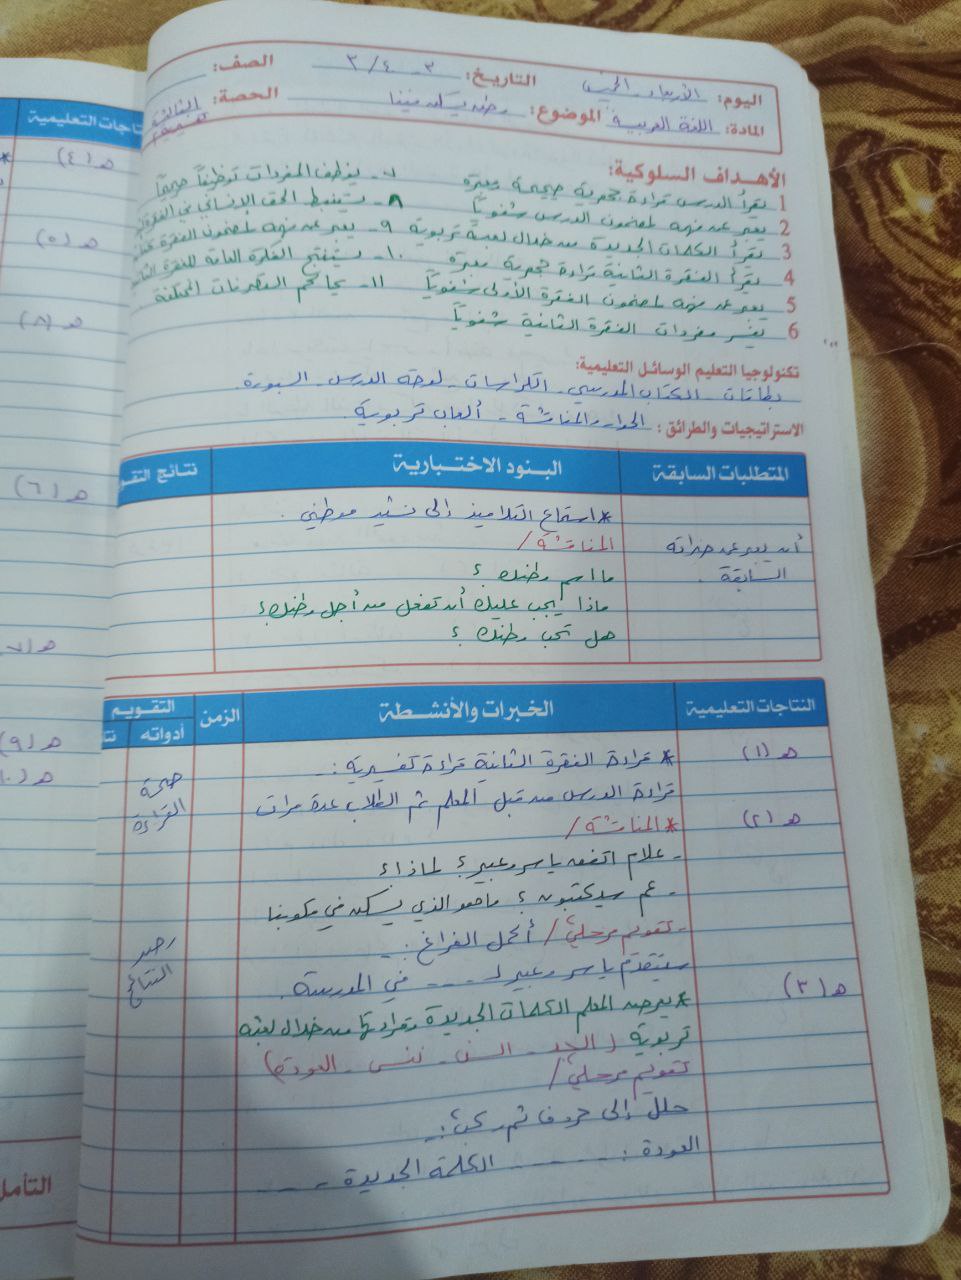 اليوم: الأربعاء - الخميس التاريخ: ٣ - ٤ / ٣ الصف:
المادة: اللغة العربية الموضوع: وطن يسكن فينا الحصة: الثالثة
الأهداف السلوكية:
1 يقرأ الدرس قراءة جهرية صحيحة معبرة ٧- يوظف المفردات توظيفاً صحيحاً
2 يعبر عن فهمه لمضمون الدرس شفوياً ٨- يستنبط الحق الإنساني في الفقرة
3 يقرأ الكلمات الجديدة من خلال لعبة تربوية ٩- يعبر عن فهمه لمضمون الفقرة
4 يقرأ الفقرة الثانية قراءة جهرية معبرة ١٠- يستنتج الفكرة العامة للفقرة الثانية
5 يعبر عن فهمه لمضمون الفقرة الأولى شفوياً ١١- يحاكم المقترنات المختلفة
6 يفسر مفردات الفقرة الثانية شفوياً
تكنولوجيا التعليم الوسائل التعليمية:
بطاقات - الكتاب المدرسي - الكراسات - لوحة الدرس - السبورة.
الاستراتيجيات والطرائق: الحوار والمناقشة - ألعاب تربوية
المتطلبات السابقة البنود الاختبارية نتائج التقو
* استماع التلاميذ إلى نشيد موطني.
أن يعبر عن خبراته المناقشة /
السابقة. ما اسم وطنك؟
ماذا يجب عليك أن تفعل من أجل وطنك؟
هل تحب وطنك؟
النتاجات التعليمية الخبرات والأنشطة الزمن التقويم
أدواته نتا
هـ (١) * قراءة الفقرة الثانية قراءة تفسيرية :- صحة
قراءة الدرس من قبل المعلم ثم الطلاب عدة مرات القراءة
هـ (٢) * المناقشة /
- علام اتفق ياسر وعبير؟ لماذا؟
- عم سيكتبون؟ ما هو الذي يسكن في قلوبنا
- تقويم مرحلي / أكمل الفراغ :- رصد
سيتقدم ياسر وعبير لـ .... في المدرسة. النتائج
هـ (٣) * يعرض المعلم الكلمات الجديدة وقراءتها من خلال لعبة
تربوية ( الجد - السن - ننسى - العودة)
تقويم مرحلي /
حلل إلى حروف ثم ركب :-
العودة : - - - - - - الكلمة الجديدة - - -
اجات التعليمية
هـ (٤)
هـ (٥)
هـ (٨)
هـ (٦)
هـ (٧)
هـ (٩)
التأمل